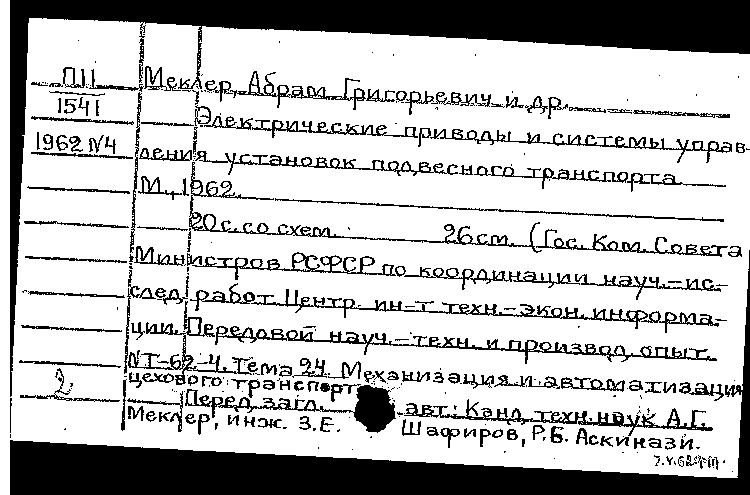 П11
1541
1962 N4
2
Меклер, Абрам Григорьевич и др.
Электрические приводы и системы управ-
ления установок подвесного транспорта
М., 1962.
20 с. со схем. 26 см. (Гос. Ком. Совета
Министров РСФСР по координации науч.-ис-
след. работ. Центр. ин-т техн.-экон. информа-
ции. Передовой науч.-техн. и производ. опыт.
NТ-62-4. Тема 24. Механизация и автоматизация
цехового транспорт
Перед загл. авт.: Канд. техн. наук А.Г.
Меклер, инж. З.Е. Шафиров, Р.Б. Аскинази.